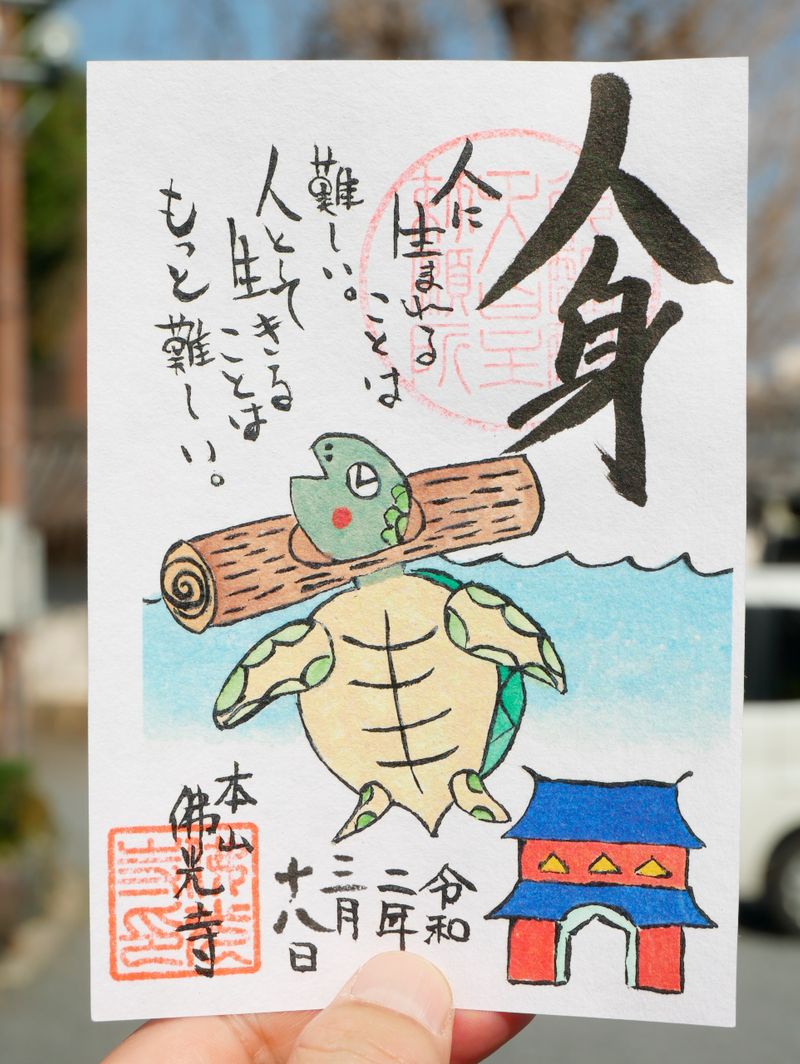 人身
人に
生まれる
ことは
難しい。
人として
生きる
ことは
もっと難しい。
天皇
勅願所
令和
二年
三月
十八日
本山
佛光寺